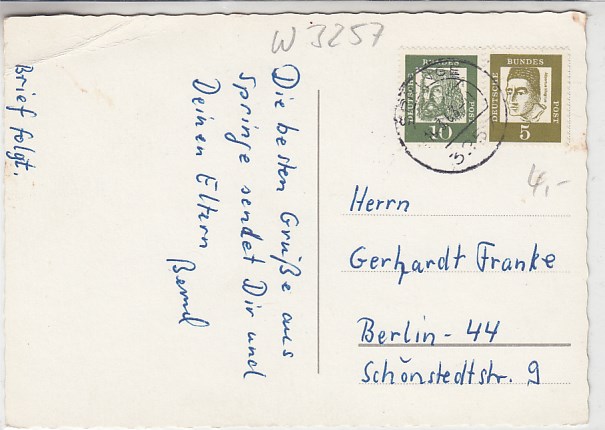 W 3257
Die besten Grüße aus
Springe sendet Dir und
Deinen Eltern
Bernd
Brief folgt.
DEUTSCHE BUNDES POST
10
DEUTSCHE BUNDES POST
5
4,-
Herrn
Gerhardt Franke
Berlin - 44
Schönstedtstr. 9